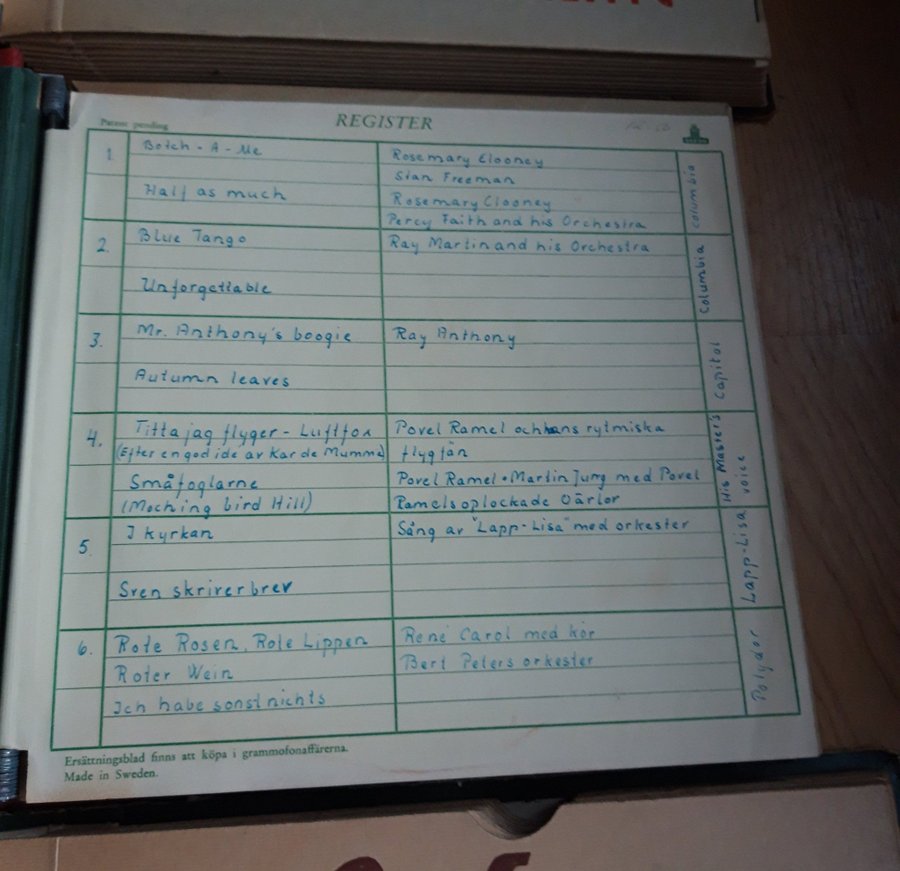 Patent pending
REGISTER
1.
Botch-A-Me
Rosemary Clooney
Stan Freeman
Half as much
Rosemary Clooney
Percy Faith and his Orchestra
Columbia
2.
Blue Tango
Ray Martin and his Orchestra
Unforgettable
Columbia
3.
Mr. Anthony's boogie
Ray Anthony
Autumn leaves
Capitol
4.
Titta jag flyger - Luftfox
Povel Ramel och hans rytmiska
(Efter en god ide av Kar de Mumma)
flygfän
Småfoglarne
Povel Ramel + Martin Jung med Povel
(Moching bird Hill)
Ramels oplockade Oärlor
His Master's
voice
5.
I kyrkan
Sång av "Lapp-Lisa" med orkester
Sven skriver brev
Lapp-Lisa
6.
Rote Rosen, Rote Lippen
René Carol med kör
Roter Wein
Bert Peters orkester
Ich habe sonst nichts
Polydor
Ersättningsblad finns att köpa i grammofonaffärerna.
Made in Sweden.